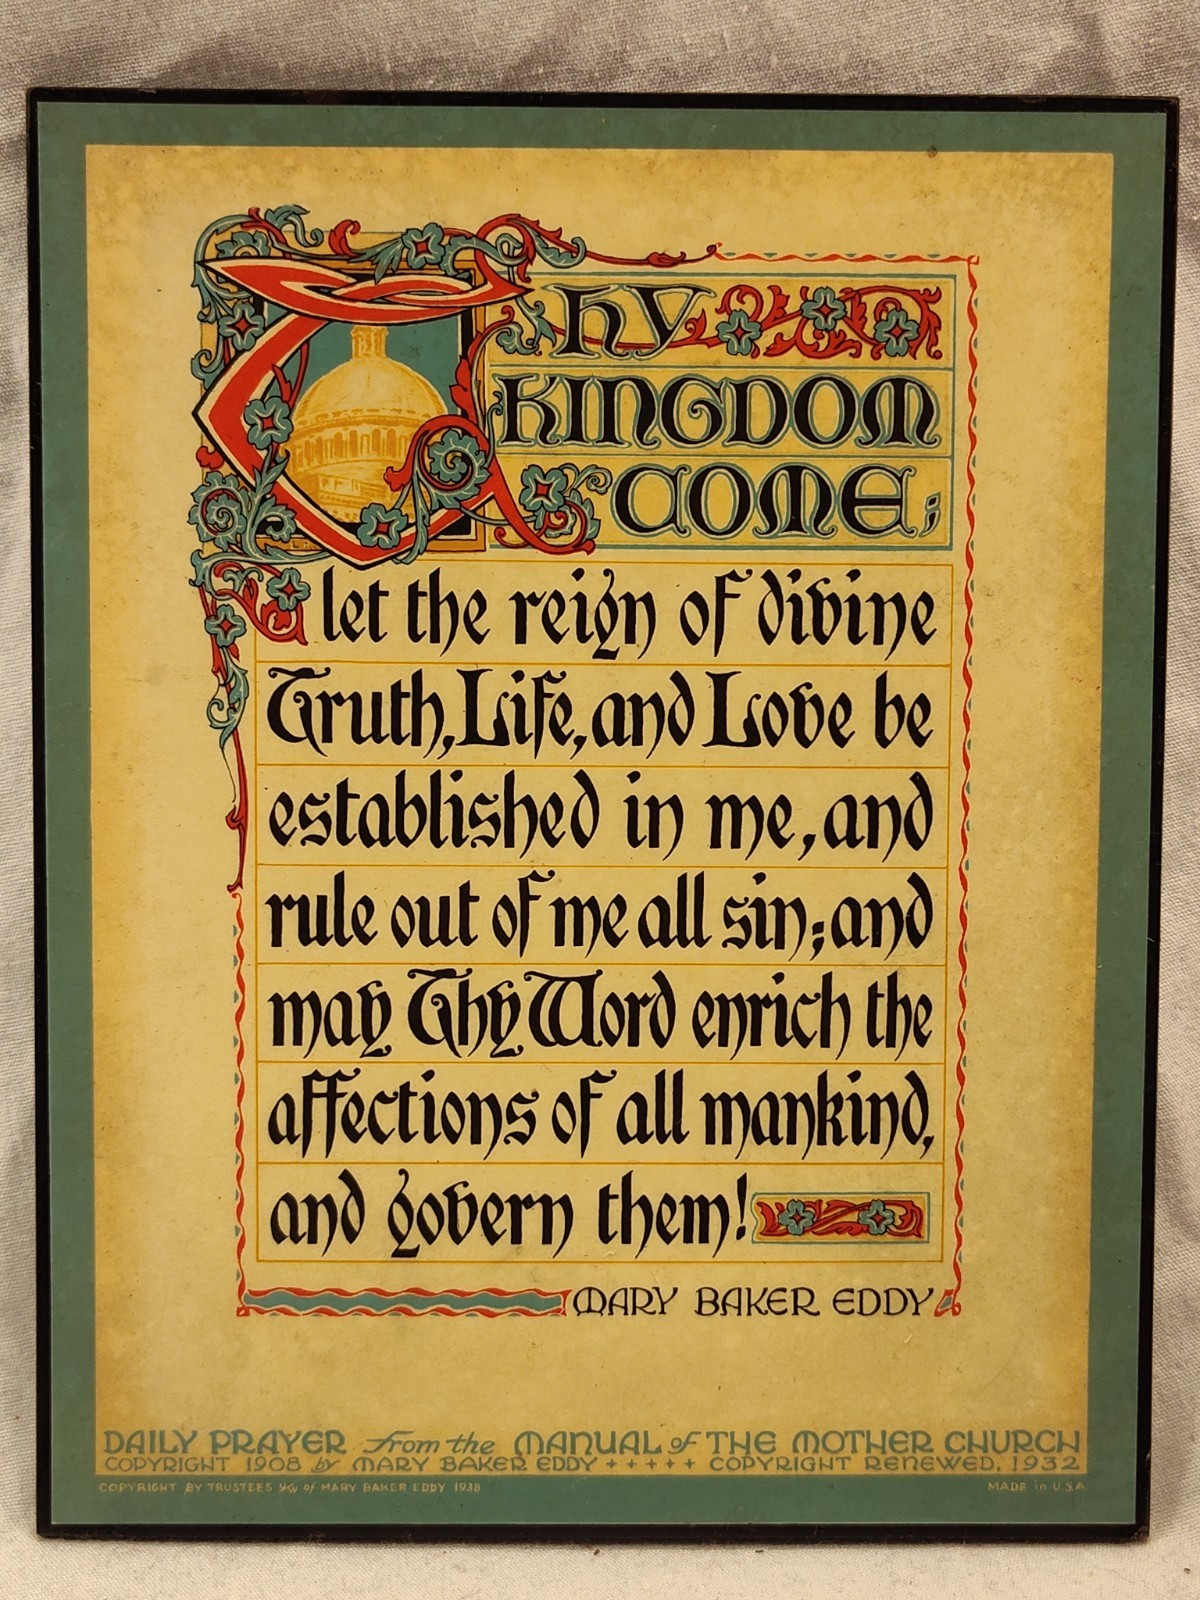 Thy
KINGDOM
COME;
let the reign of divine
Truth, Life, and Love be
established in me, and
rule out of me all sin; and
may Thy Word enrich the
affections of all mankind,
and govern them!
MARY BAKER EDDY
DAILY PRAYER from the MANUAL of THE MOTHER CHURCH
COPYRIGHT 1908 by MARY BAKER EDDY +++++ COPYRIGHT RENEWED, 1932
COPYRIGHT BY TRUSTEES u/w of MARY BAKER EDDY 1938
MADE in U.S.A